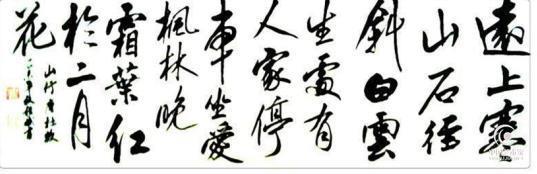 遠上寒
山石徑
斜白雲
生處有
人家停
車坐愛
楓林晚
霜葉红
於二月
花
山行唐杜牧